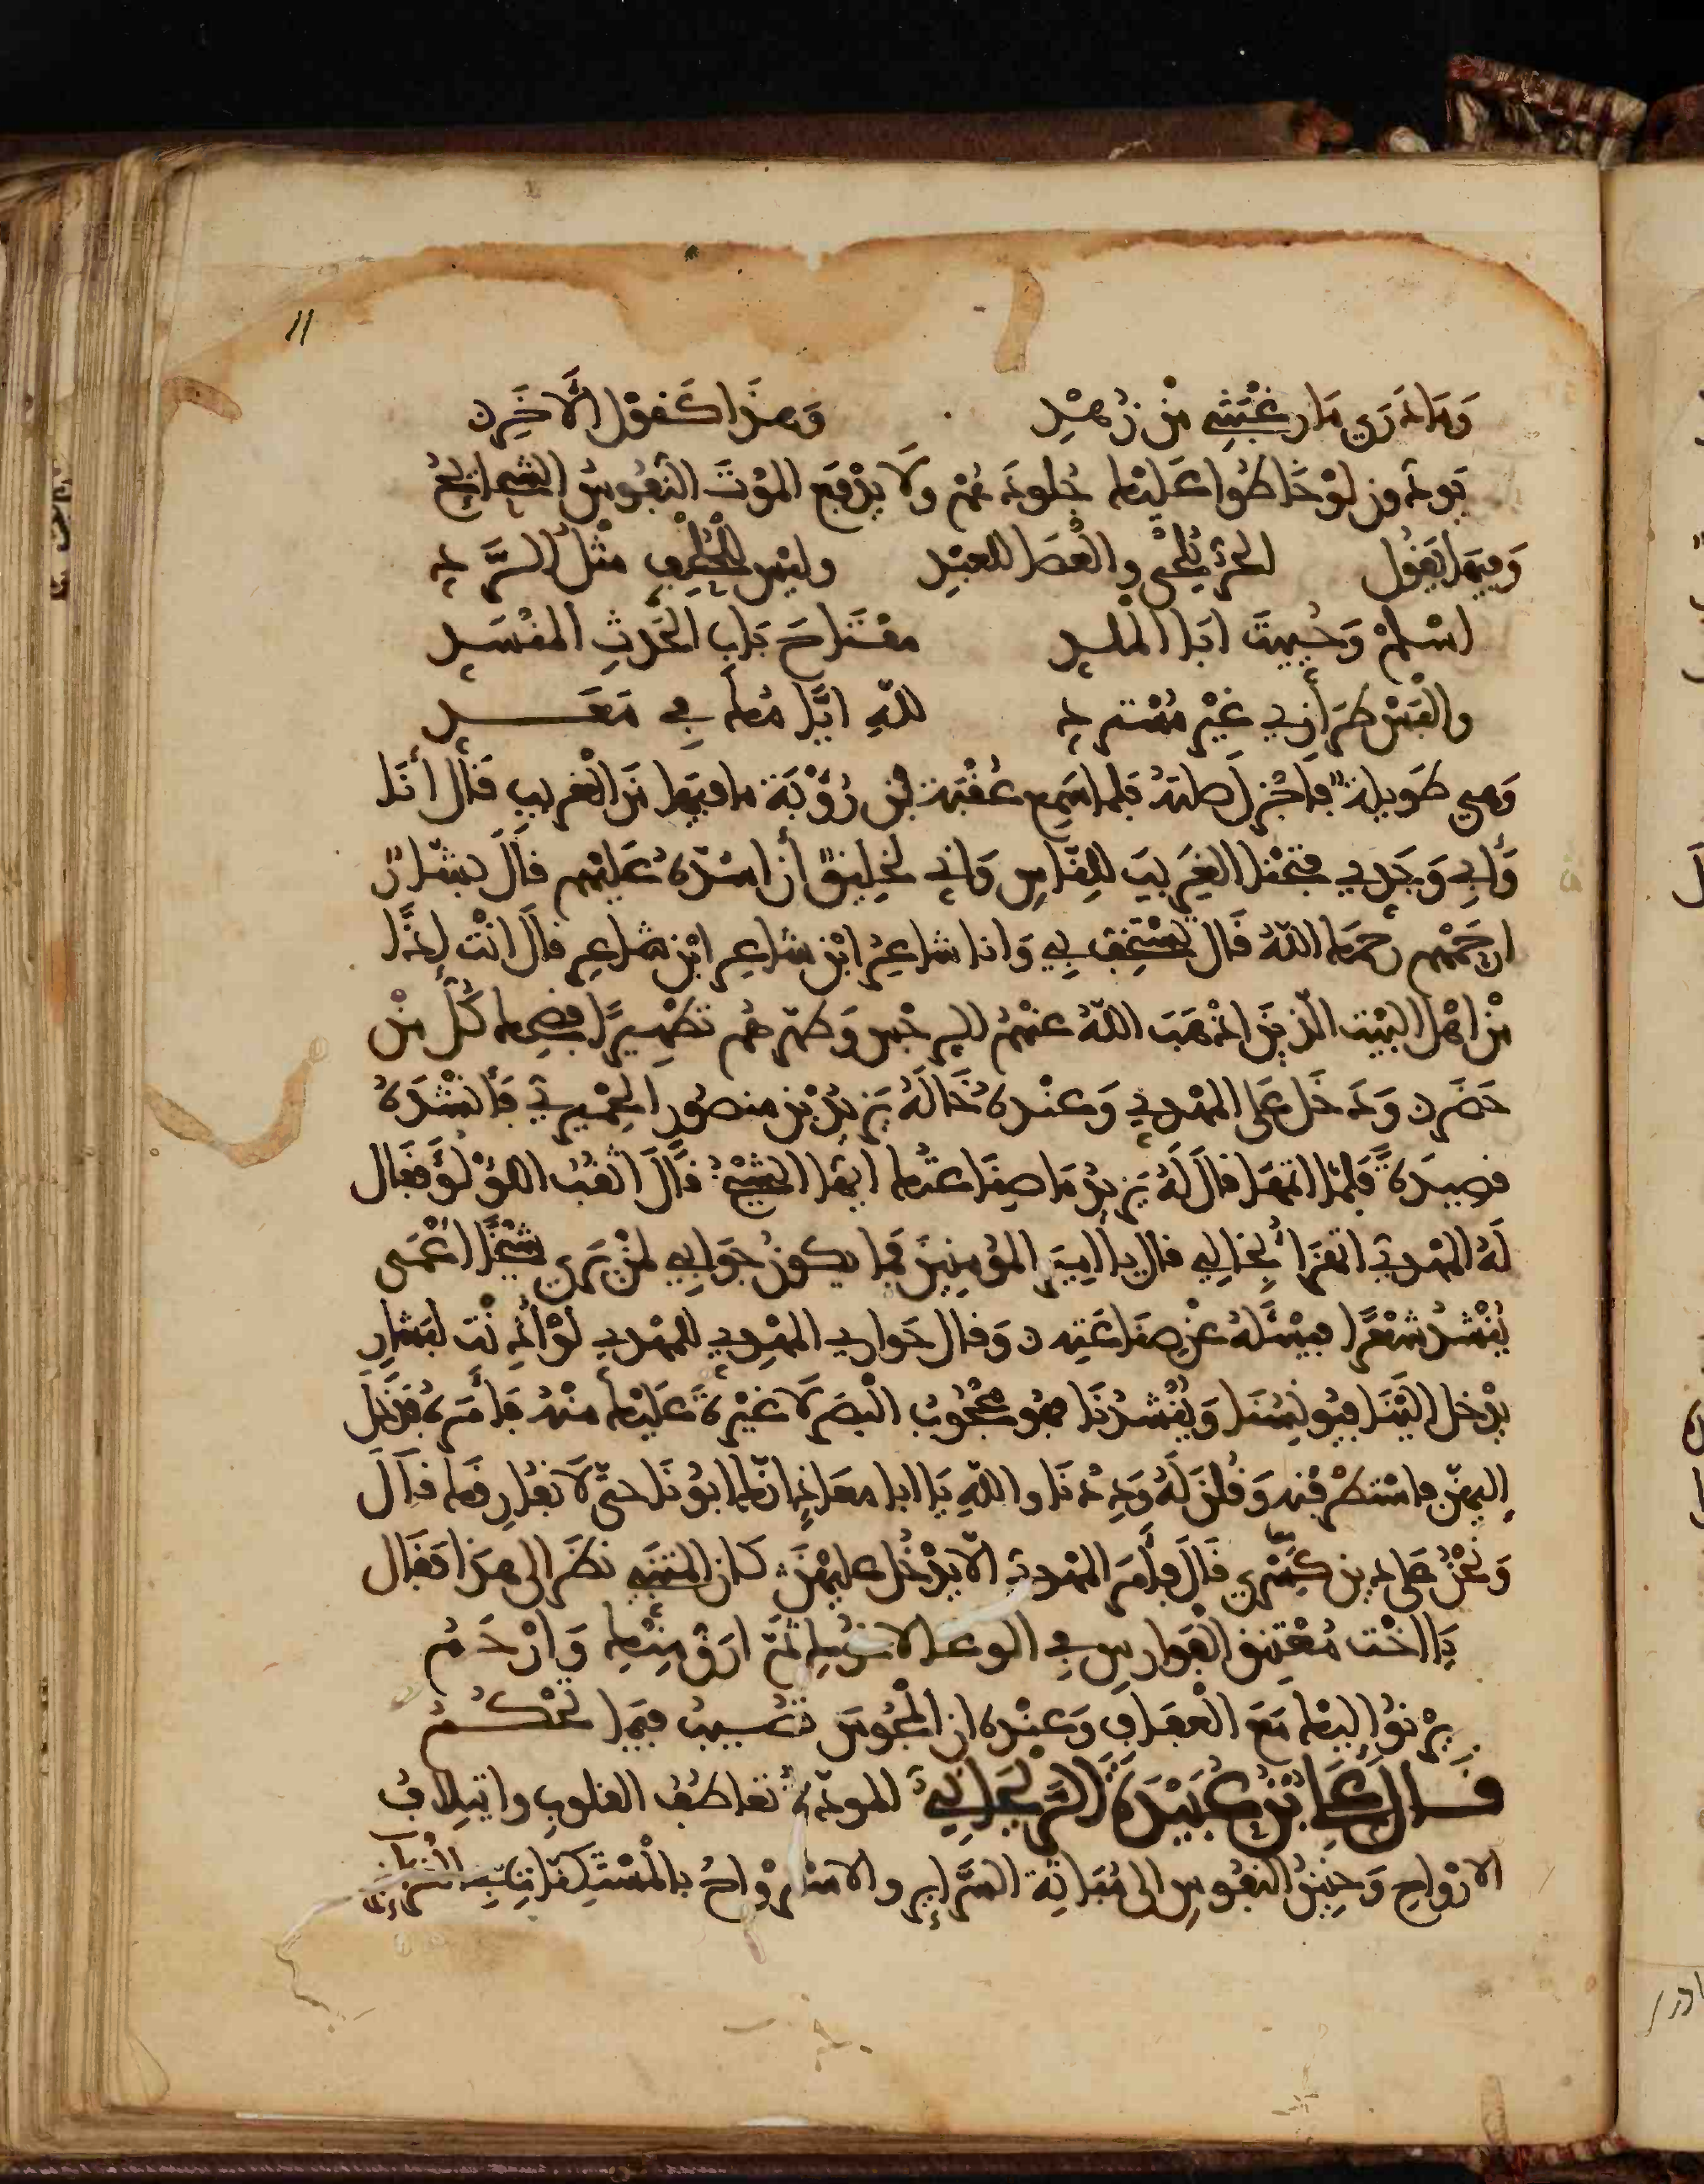 11
وَمَا ذَرَى مَارغبتي مِنْ زُهْدِ وَهذَا كَقَوْلِ الآخَرِ
يَودّونَ لوْ خَاطُوا عَلَيْهَا جُلودَهُمْ ولَا يَدْفَعُ المَوْتَ النّفُوسُ الشحائحُ
وَفِيهَا يَقُول الحُرُّ يُلْحَى والْعَصَا للعَبْدِ وليْسَ للمُلْحِفِ مثْلُ الرَّدِّ
اسْلَمْ وَحُيِيتَ أبَا الملد مفْتَاحَ بَابِ الحَدَثِ المنْسَدِّ
والْبَسْ طِرَازِي غَيْرَ مُسْتَرَدِّ للهِ أيَّامُهَا فِي مَعَدِّ
وَهي طَوِيلة فأَجْزلَ صلتَهُ فلما سَمِعَ عُقْبَة بْن رُؤْبَة ما فيهَا مَن الْغريب قَالَ أنَا
وَأبِي وَجَدِي فتحْنا الغَرِيبَ للِنّاسِ وَإنِّي لخلِيقٌ أنْ أسُدَّهُ عَلَيْهم قالَ بشّارٌ
ارحَمْهم رحمَكَ اللهُ قَال تسْتَخِفُّ بِي وَأنا شاعِرُ ابْن شاعِرٍ ابْن شاعِرٍ قالَ انْتَ إذًا
مِنْ أهْل البَيْت الّذينَ أذْهَبَ اللهُ عنْهُمُ الرجْسَ وَطَهّرَهُم تطْهِيرًا فضحِكَ كُلّ منْ
حَضَرَ وَدَخَلَ عَلَى المهْدِي وَعنْدهُ خَالُهُ يَزِيدُ بْن منصُور الحِمْيرِيّ فأَنْشَدَهُ
قصيدَةً فَلمَّا أتمّهَا قالَ لَهُ يَزيدُ مَا صِنَاعَتُكَ أيّهَا الشيْخُ قَالَ أثقُبُ اللؤْلُؤَ فقَال
لَهُ المهْديّ أتهْزَأُ بِخالِي قال يا أمِيرَ المُؤمِنِينَ فما يكونُ جوَابِي لمنْ يَرى شيْخًا أعْمَى
يُنْشدُ شعْرًا فيَسْألهُ عَنْ صنَاعَتِهِ وَقال جَواري المهْدِي للمهْدِي لوْ أذِنْتَ لبشارٍ
يدْخل إليْنَا فيُونِسُنَا وَيُنْشدُنَا فهُو محْجُوبُ البصَر لا غيْرَةَ عَلَيْكَ منْهُ فأَمَرَهُ فدَخَلَ
إليهنّ فاسْتظرْفْنه وَقُلنَ لَهُ وَدِدْنَا واللهِ يَا أبا معَاذٍ أنّكَ أبُونَا حتى لَا نفارِقَكَ قالَ
وَنَحْنُ على دين كِسْرى قَالَ فأَمَرَ المهْدِيّ ألّا يدْخُلَ عليهْنَّ كانَ المتنبي نظَرَ إلى هذَا فقَال
يَا أخْتَ مُعْتَنِقِ الْفَوارِسِ فِي الوغى لأخُوكِ ثَمّ أرَقُّ مِنْكِ وَأرْحَمُ
يرْنُو إليْكَ مَعَ الْعفَافِ وَعنْدهُ أن المجُوسَ تُصِيبُ فيمَا تَحْكُمُ
قَالَ عَلي بْنُ عُبَيْدَةَ الرّيحَانِي المودّةُ تَعَاطُفُ القلوبِ وائتِلافُ
الأرْوَاحِ وَحنِينُ النّفُوسِ إلى مُبَاثّةِ السَّرائِرِ والاسْتِرْوَاحُ بالمُسْتَكِنّاتِ فِي الغرائز